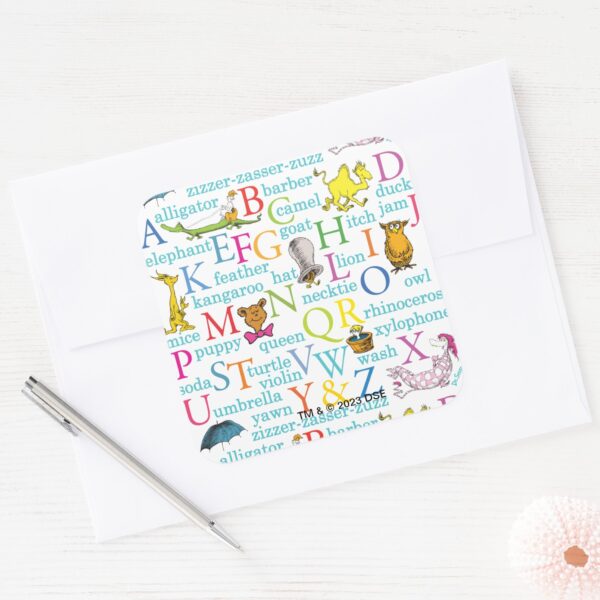 zizzer-zasser-zuzz
alligator B barber D
A C camel duck
elephant EFG goat H itch jam J
K feather hat L lion I
kangaroo necktie O owl
mice M N rhinoceros
P puppy queen QR xylophone
soda ST turtle VW wash X
U umbrella violin Y & Z
yawn TM & © 2023 DSE
zizzer-zasser-zuzz
alligator B barber